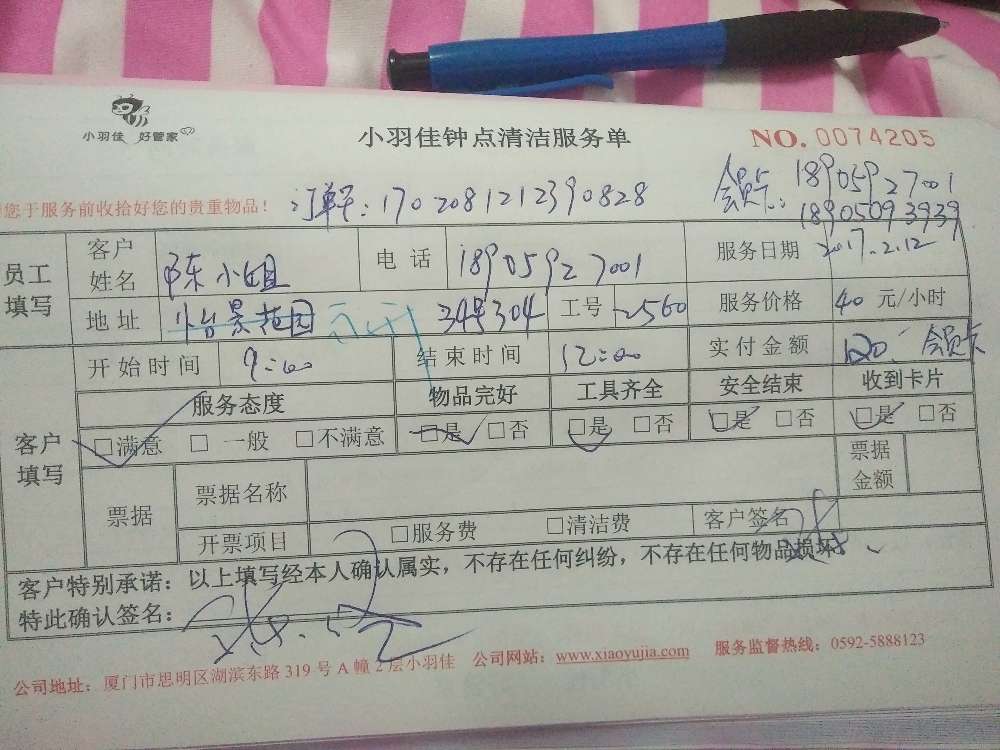 小羽佳 好管家
小羽佳钟点清洁服务单
NO. 0074205
您于服务前收拾好您的贵重物品！
订单: 1702081212390828
会员卡: 18905927001
18905093939
员工填写
客户姓名 陈小姐 电话 18905927001 服务日期 2017.2.12
地址 怡景花园 34号304 工号 2560 服务价格 40 元/小时
客户填写
开始时间 9:00 结束时间 12:00 实付金额 120. 会员卡
服务态度 物品完好 工具齐全 安全结束 收到卡片
□满意 □ 一般 □不满意 □是 □否 □是 □否 □是 □否 □是 □否
票据 票据名称 票据金额
开票项目 □服务费 □清洁费 客户签名
客户特别承诺：以上填写经本人确认属实，不存在任何纠纷，不存在任何物品损坏
特此确认签名：
公司地址：厦门市思明区湖滨东路 319 号 A 幢 2 层小羽佳 公司网站：www.xiaoyujia.com 服务监督热线：0592-5888123